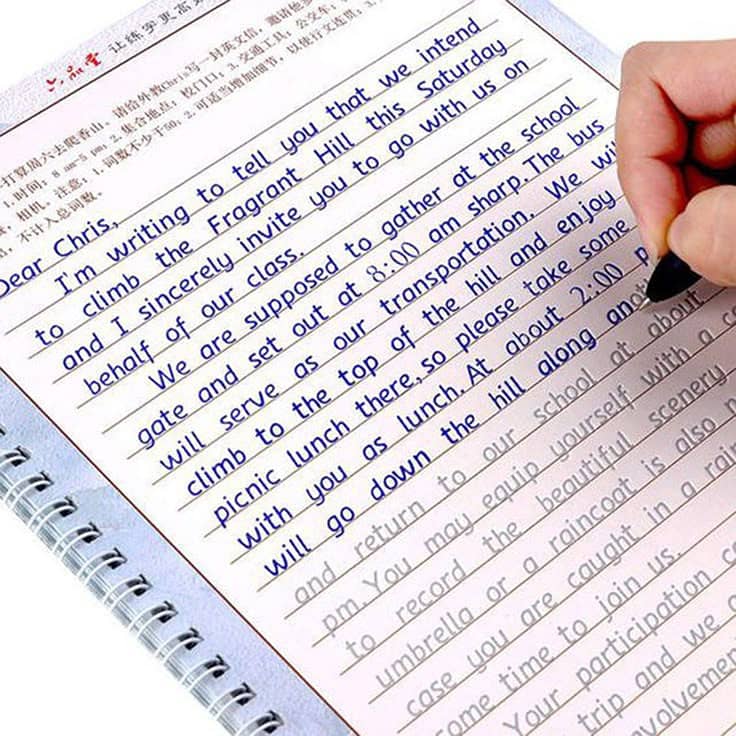 六品堂 让练字更高
打算周六去爬香山，请给外教Chris写一封英文信，邀请他
1.时间：8 am-5 pm；2.集合地点：校门口；3.交通工具：公交车；
相机。注意：1.词数不少于50；2.可适当增加细节，以使行文连贯；3.
不计入总词数。
Dear Chris,
I'm writing to tell you that we intend
to climb the Fragrant Hill this Saturday
and I sincerely invite you to go with us on
behalf of our class.
We are supposed to gather at the school
gate and set out at 8:00 am sharp. The bus
will serve as our transportation. We
climb to the top of the hill and enjoy
picnic lunch there, so please take some
with you as lunch. At about 2:00
will go down the hill along and
and return to our school at about
pm. You may equip yourself with a
to record the beautiful scenery
umbrella or a raincoat is also
case you are caught in a
some time to join us.
Your participation
trip and we